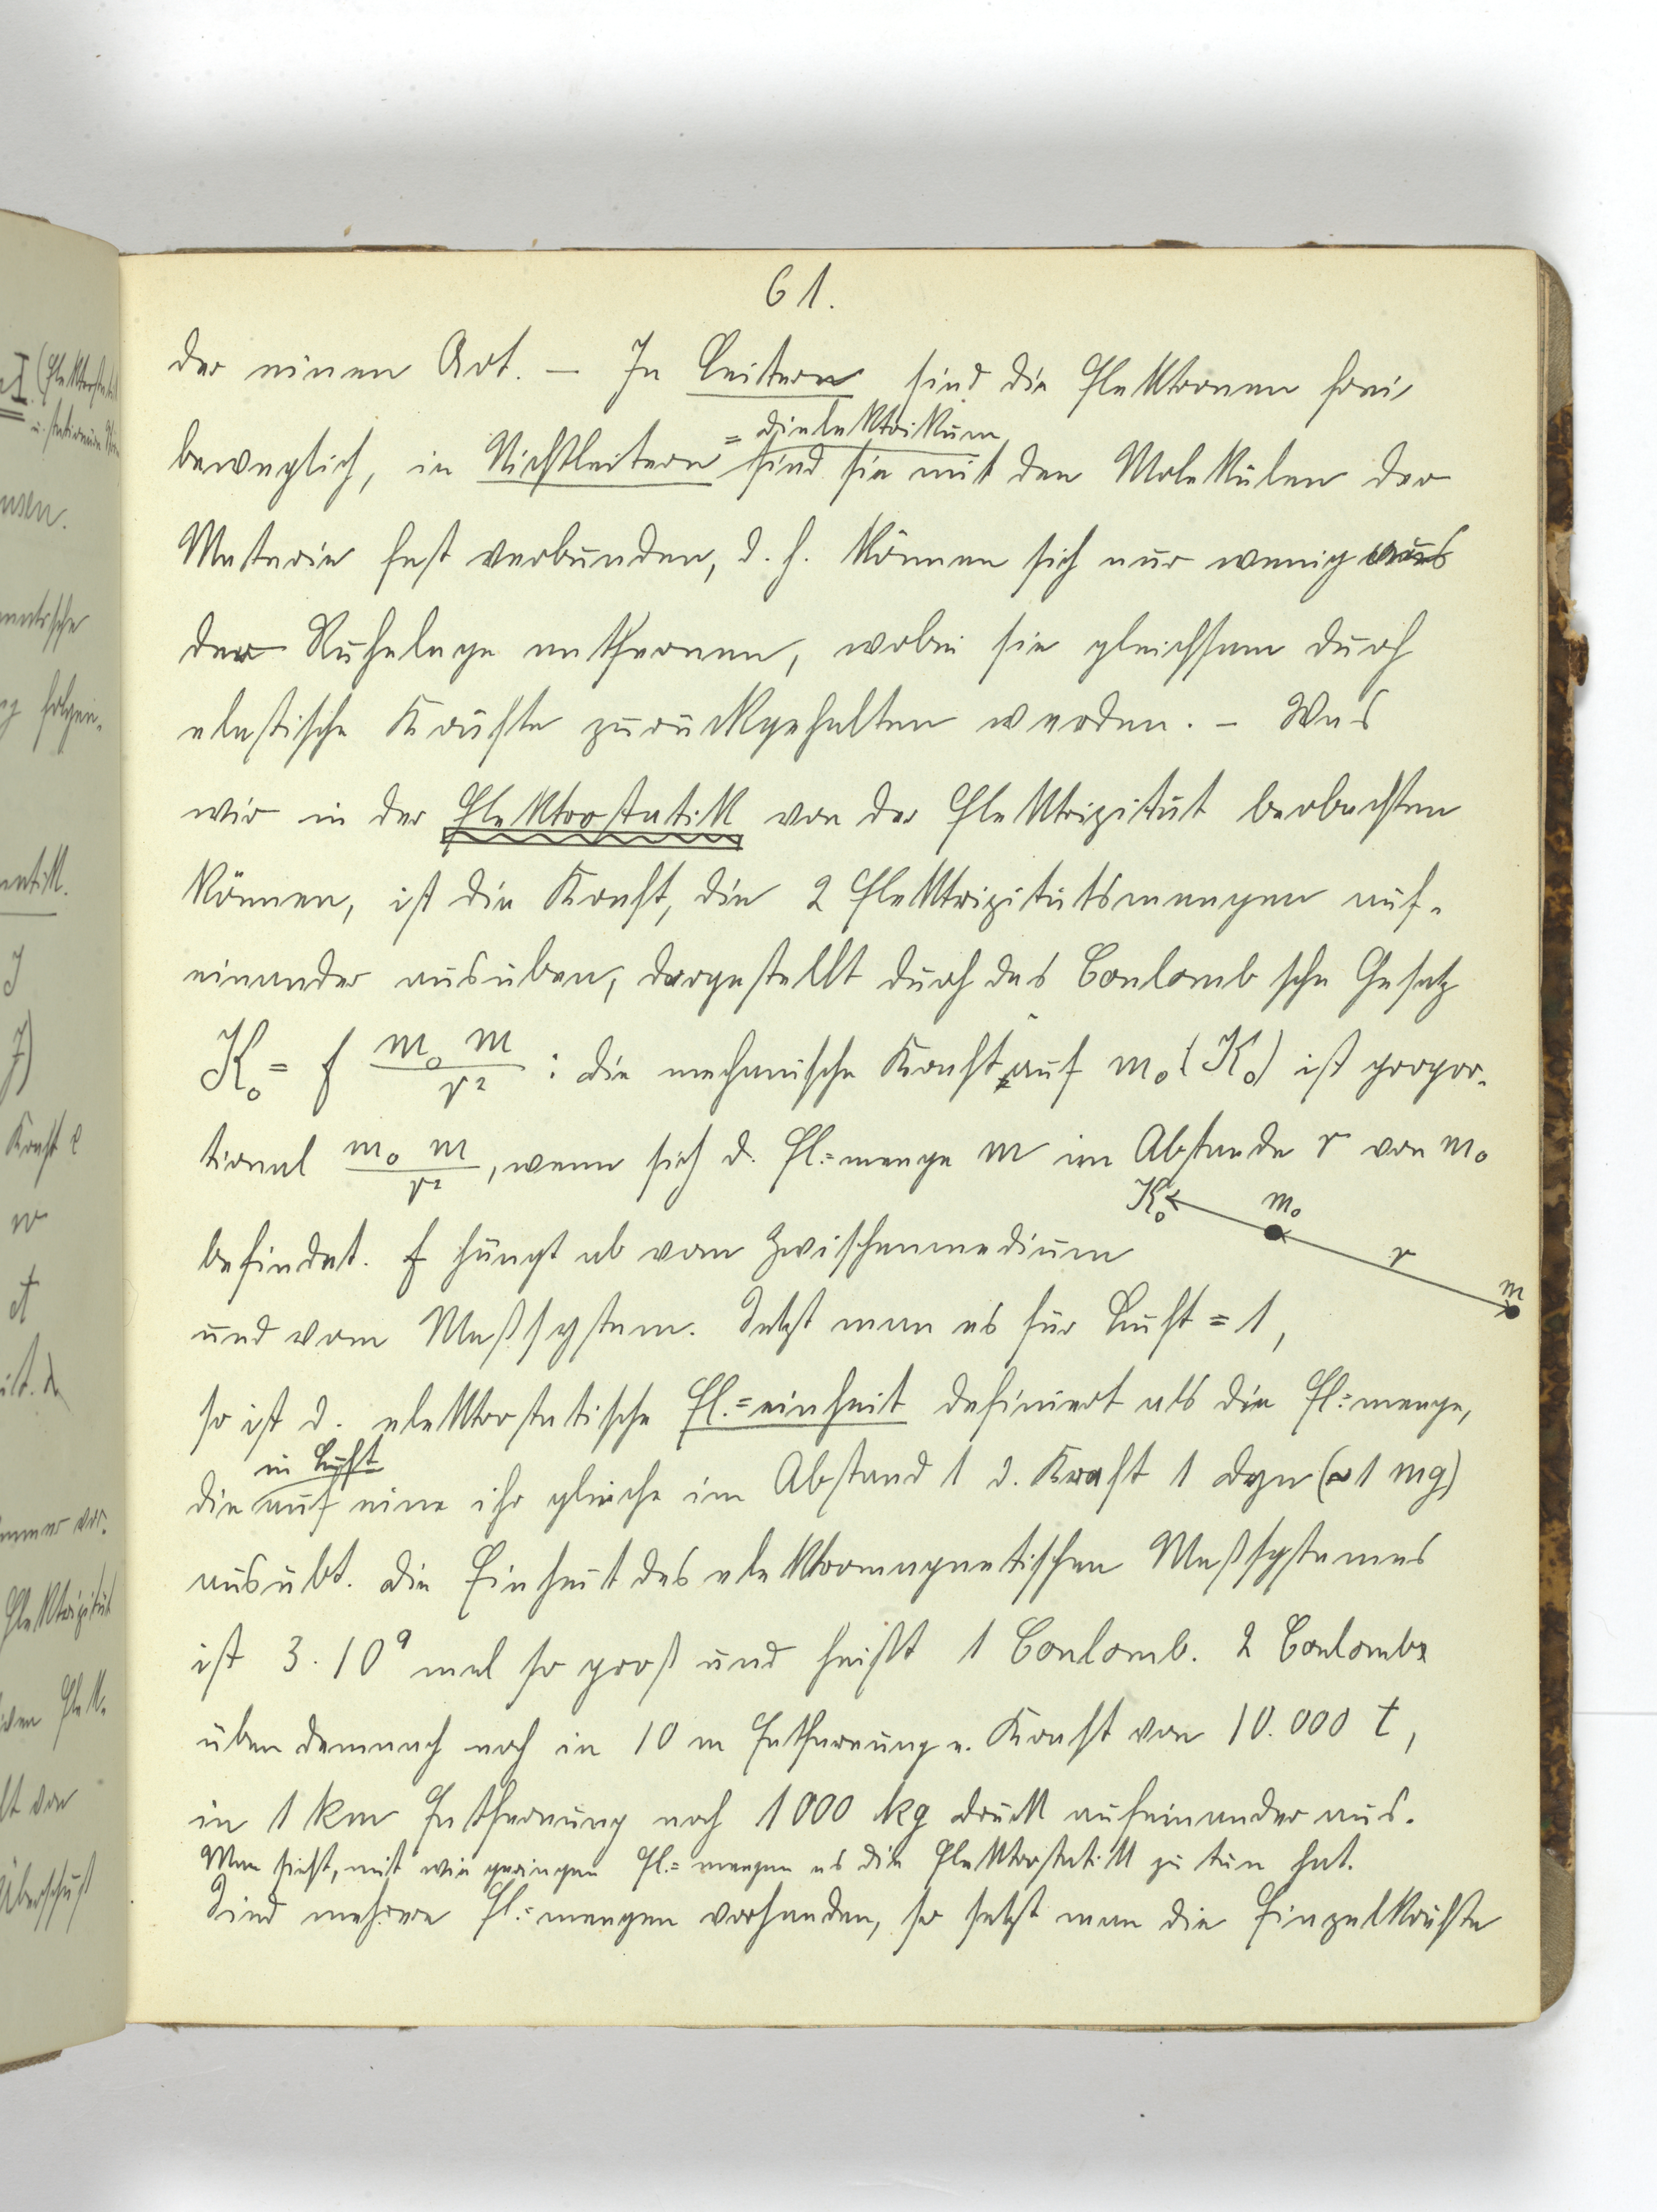 61.
der einen Art. – In Leitern sind die Elektronen frei
= Dielektrikum
beweglich, in Nichtleitern sind sie mit den Molekülen der
Materie fest verbunden, d. h. können sich nur wenig aus
der Ruhelage entfernen, wobei sie gleichsam durch
elastische Kräfte zurückgehalten werden. – Was
wir in der Elektrostatik von der Elektrizität beobachten
können, ist die Kraft, die 2 Elektrizitätsmengen auf-
einander ausüben, dargestellt durch das Coulomb'sche Gesetz
K₀ = f m₀ m / r² : die mechanische Kraft auf m₀ (K₀) ist propor-
tional m₀ m / r², wenn sich d. El.=menge m im Abstande r von m₀
K₀ m₀ r m
befindet. f hängt ab vom Zwischenmedium
und vom Maßsystem. Setzt man es für Luft = 1,
so ist d. elektrostatische El.=einheit definiert als die El.=menge,
in Luft
die auf eine ihr gleiche im Abstand 1 d. Kraft 1 Dyn (≈1 mg)
ausübt. Die Einheit des elektromagnetischen Maßsystemes
ist 3.10⁹ mal so groß und heißt 1 Coulomb. 2 Coulombs
üben demnach noch in 10 m Entfernung e. Kraft von 10.000 t,
in 1 km Entfernung noch 1000 kg Druck aufeinander aus.
Man sieht, mit wie geringen El.=mengen es die Elektrostatik zu tun hat.
Sind mehrere El.=mengen vorhanden, so setzt man die Einzelkräfte